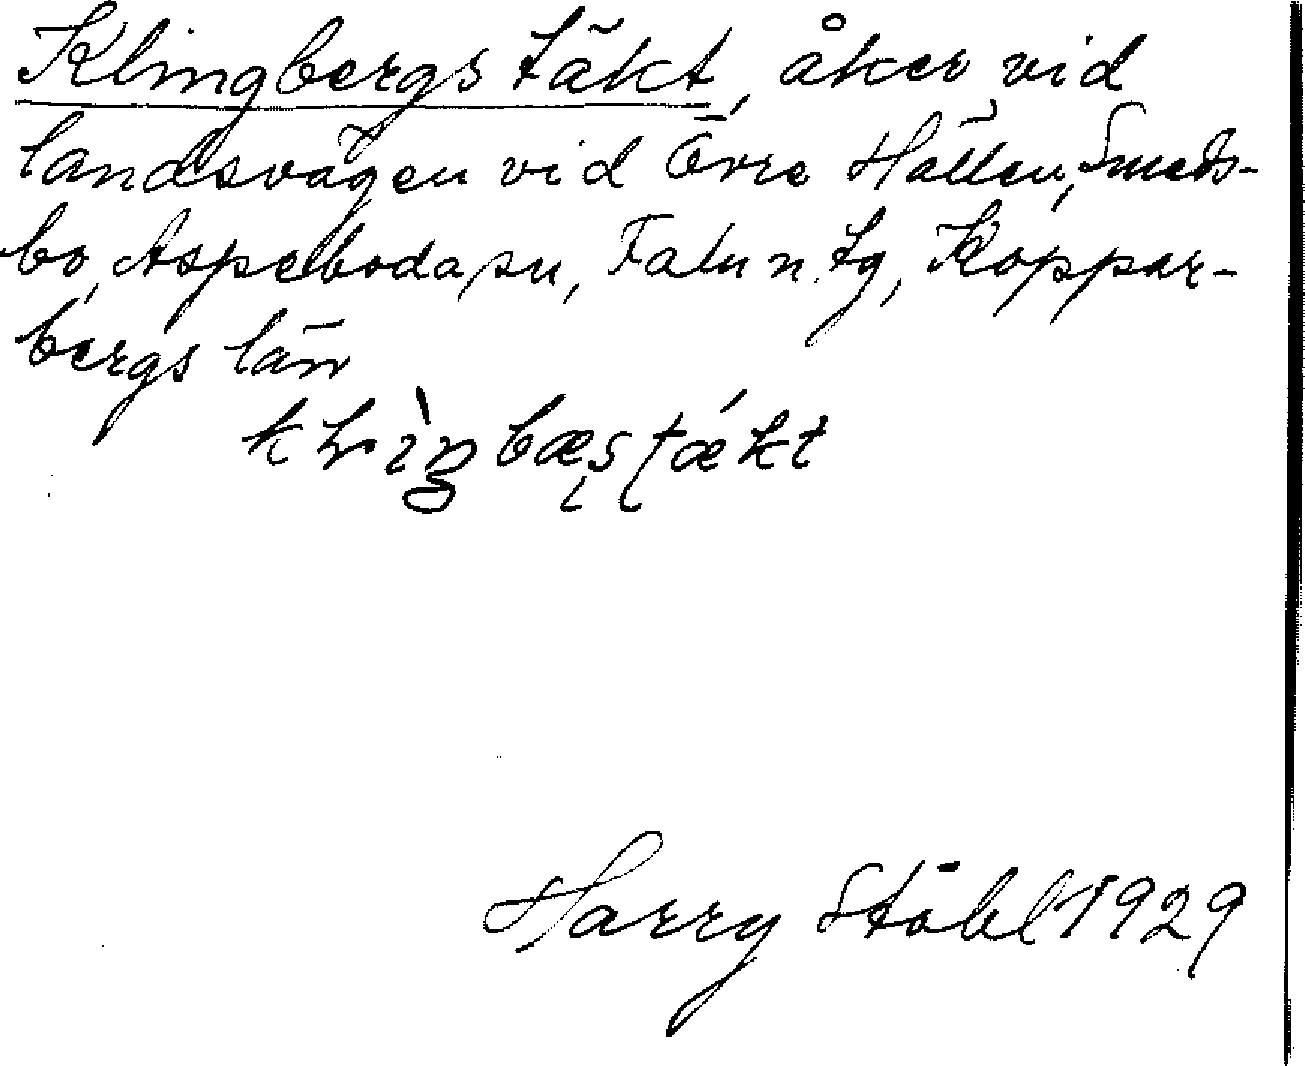 Klingbergs täkt, åker vid
landsvägen vid Övre Hällen, Smeds-
bo, Aspeboda sn, Falun tg, Koppar-
bergs län
Harry Ståhl 1929